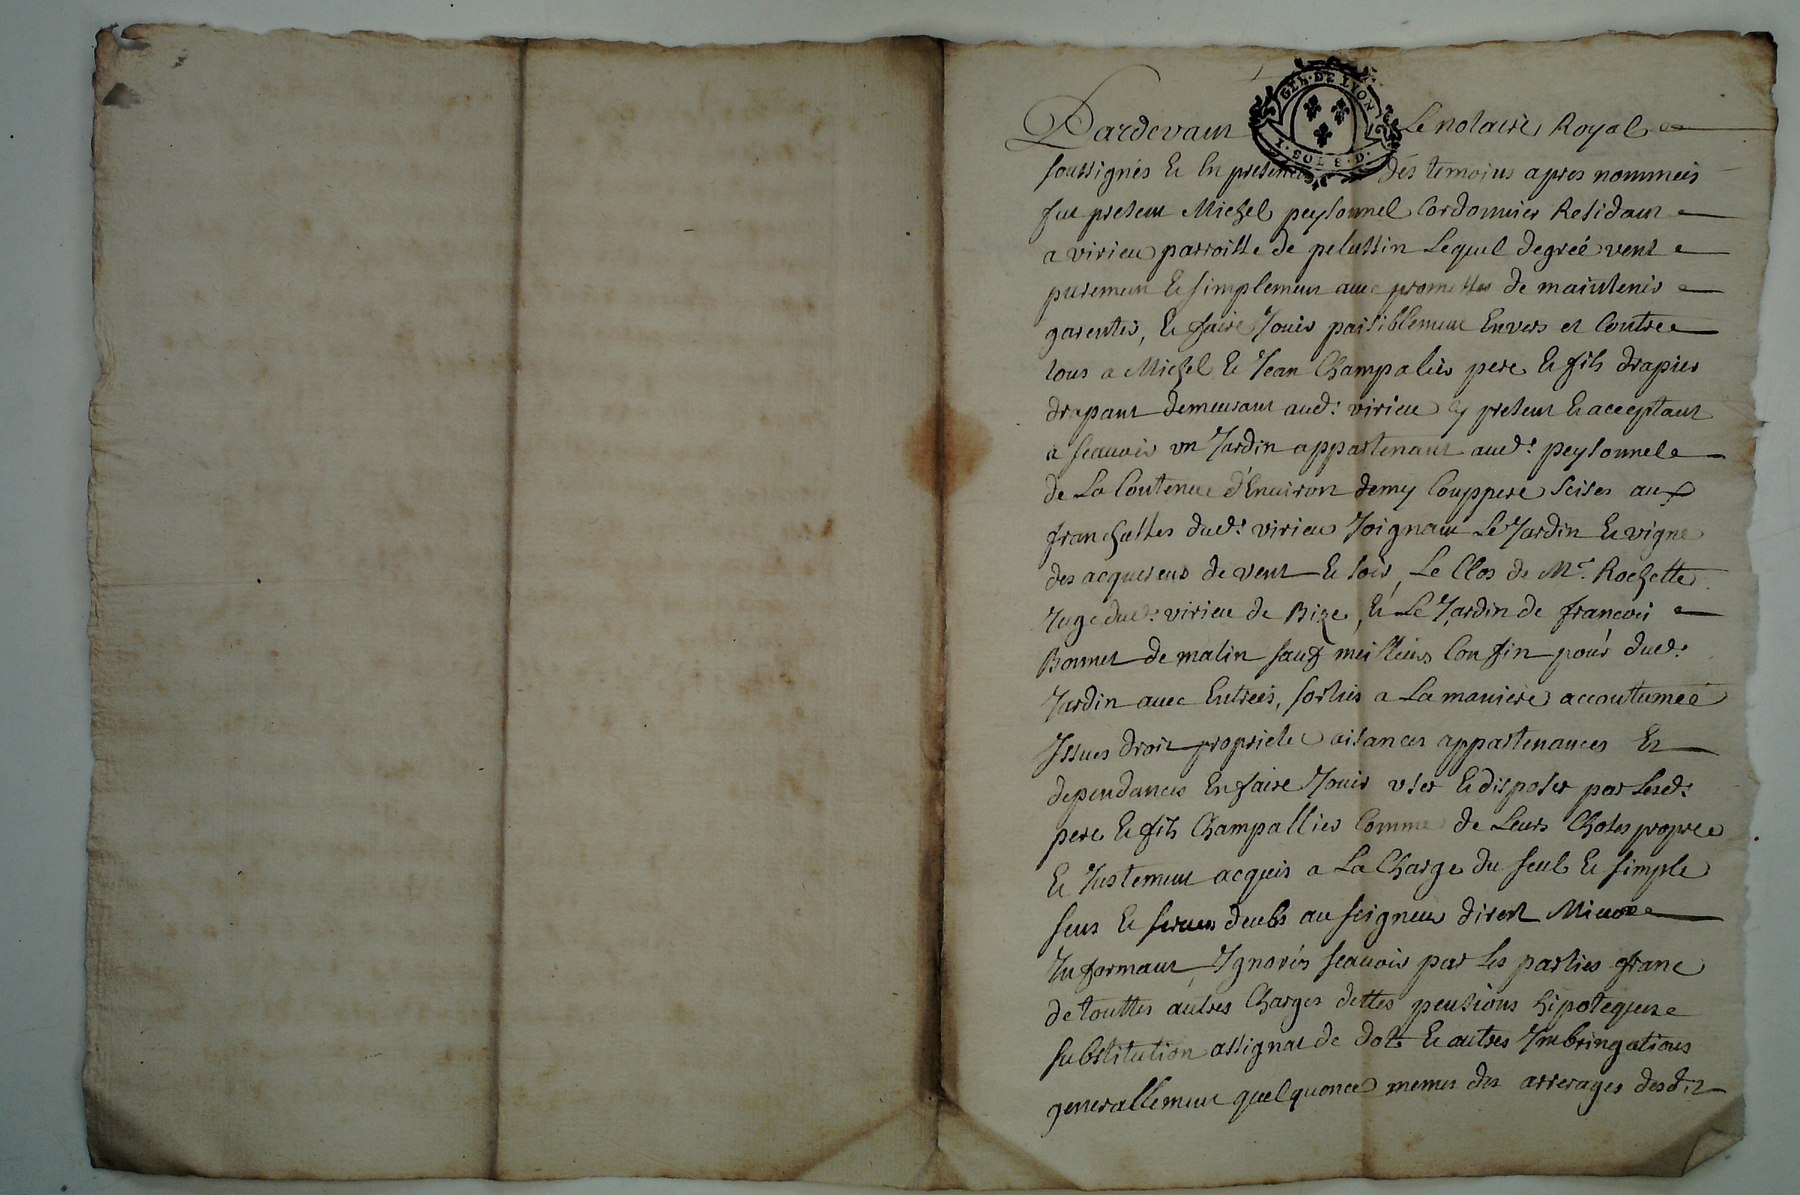 GEN. DE LYON
1. SOL 8. D.
Pardevant Le notaire Royal
soussignés et En presence des temoins apres nommeés
fut present Michel peysonnel Cordonnier Residant
a virieu parroisse de pelussin Lequel degreé vent
purement et simplement avec promesses de maintenir
garentir, et faire Jouir paisiblement Envers et Contre
tous a Michel et Jean Champalier pere et fils drapier
drapant demeurant aud: virieu cy present et acceptant
a scauoir un Jardin appartenant aud: peysonnel
de La Contenue d'Enuiron demy Couppere scises aux
franchisses dud: virieu Joignant Le Jardin et vigne
des acquereurs de vent et soir, Le Clos de Mr. Rochette
Juge dud: virieu de Bize, et Le Jardin de francois
Bonnet de matin sauf meilleurs Confin pour dud:
Jardin avec Entreés, sorties a La maniere accoutumeé
Issues droit proprieté aisances appartenances Et
dependances En faire Jouir user et disposer par Lesd:
pere et fils Champallier Comme de Leurs Choses propre
et Justement acquis a La Charge du seul et simple
sens et servis deubs au seigneur direct
Informant Ignorér scauoir par Les parties franc
de touttes autres Charges dettes pensions hipoteque
substitution assignat de dot et autres Imbringations
generallement quelquonce memes des arrerages desdit